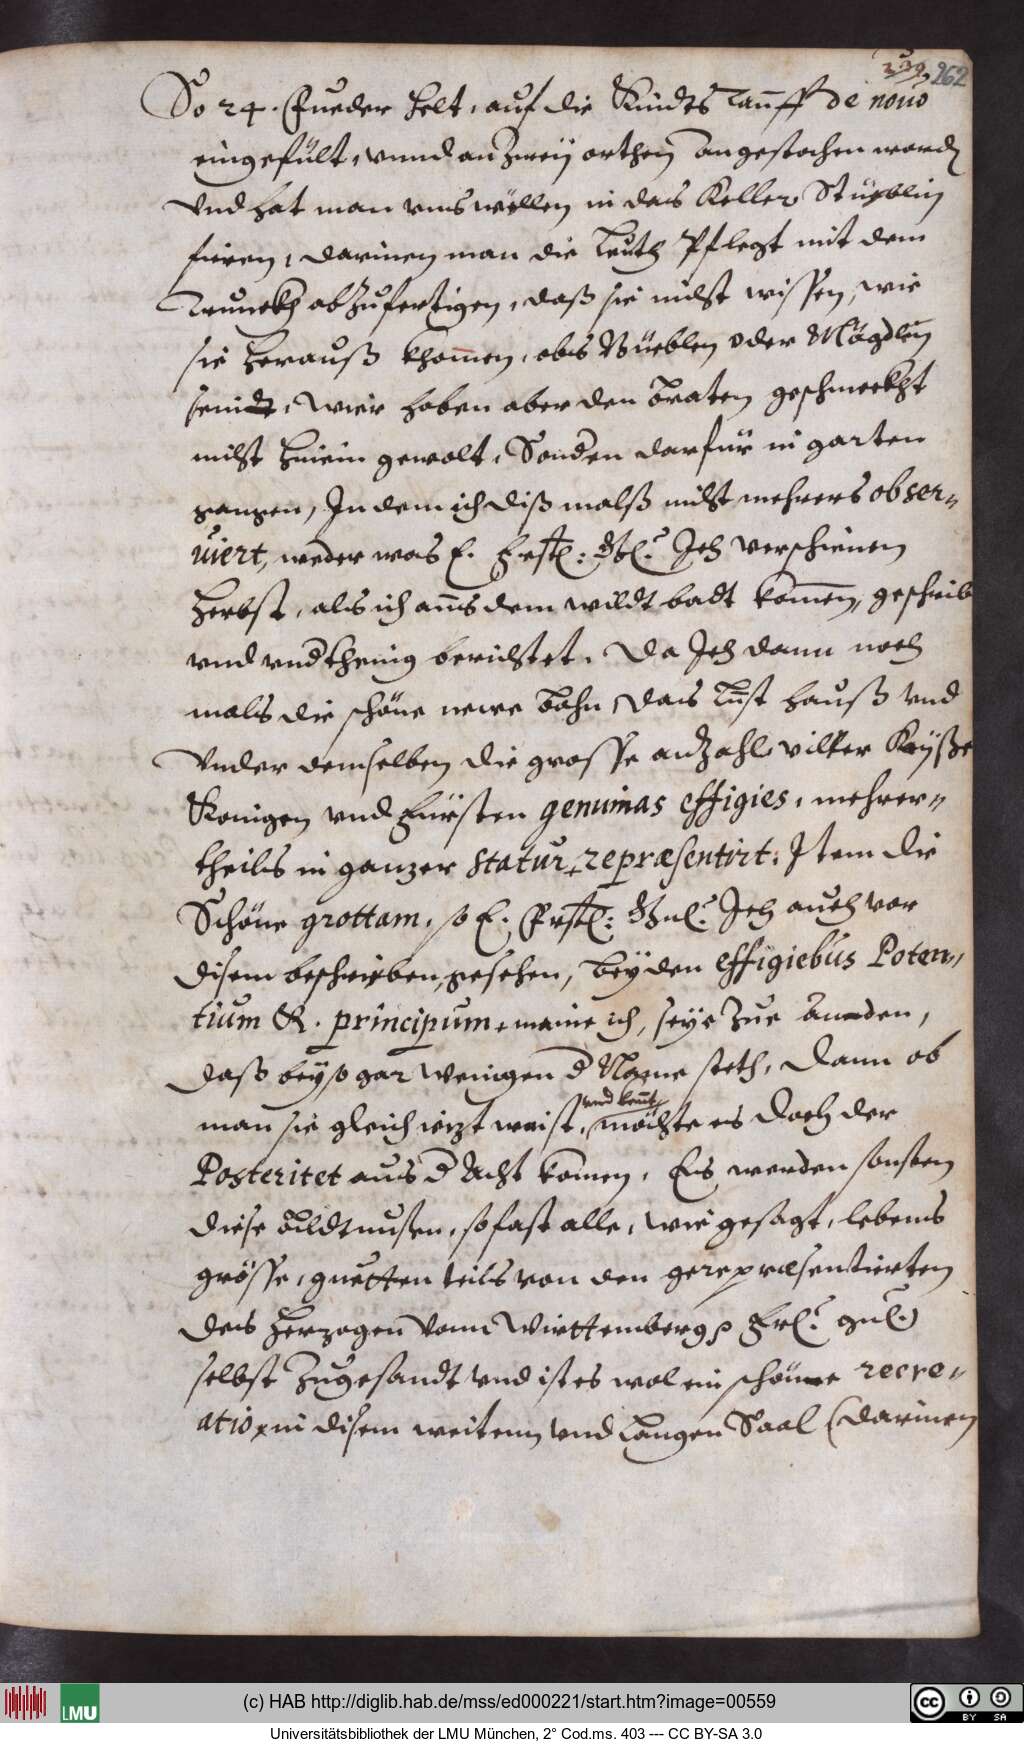 239. 262
So 24. Fueder helt, auf die Kindts Tauff de nouo
eingefült, vnnd an zweÿ orthen angestochen word
Vnd hat man vns wöllen in das Keller Stüeblin
fieren, darinen man die Leuth Pflegt mit dem
Trunckh abzufertigen, daß sie nicht wissen, wie
sie herauß khommen, obs Büeblen oder Mägdlen
seindt, Wir haben aber den braten geschmeckht
nicht hinein gewolt, Sonden darfür in garten
gangen, In dem ich diß malß nicht mehrers obser-
uiert, weder was E. Frstl: Gl. Ich verschinen
Herbst, als ich auß dem wildt badt kommen, geschrib
vnd vndthenig berichtet. Da Ich dann noch
mals die schöne newe bahn, das Lust hauß vnd
Vnder demselben die grosse anzahl viller Kayße
Konigen vnd Fürsten genuinas effigies, mehrer-
theils in ganzer statur, repræsentirt. Item die
Schöne grottam, so E. Frstl: Gnl. Ich auch vor
disem beschriben, gesehen, beÿ den effigiebus Poten-
tium &. principum, maine ich, seÿe zue anden,
daß beÿ so gar wenigen d Name steth, dann ob
man sie gleich iezt waist, möchte es doch der
vnd kennt
Posteritet aus d Acht komen, Es werden sonsten
diese bildtnusen, so fast alle, wie gesagt, lebens
grösse, guetten teils von den gerepræsentierten
des Herzogen von Wirttembergs Frl. gnl.
selbst zugesandt vnd ist es wol ein schöne recre-
atio, in disem weitem vnd Langen Saal (darinen
(c) HAB http://diglib.hab.de/mss/ed000221/start.htm?image=00559
LMU
cc BY SA
Universitätsbibliothek der LMU München, 2° Cod.ms. 403 --- CC BY-SA 3.0